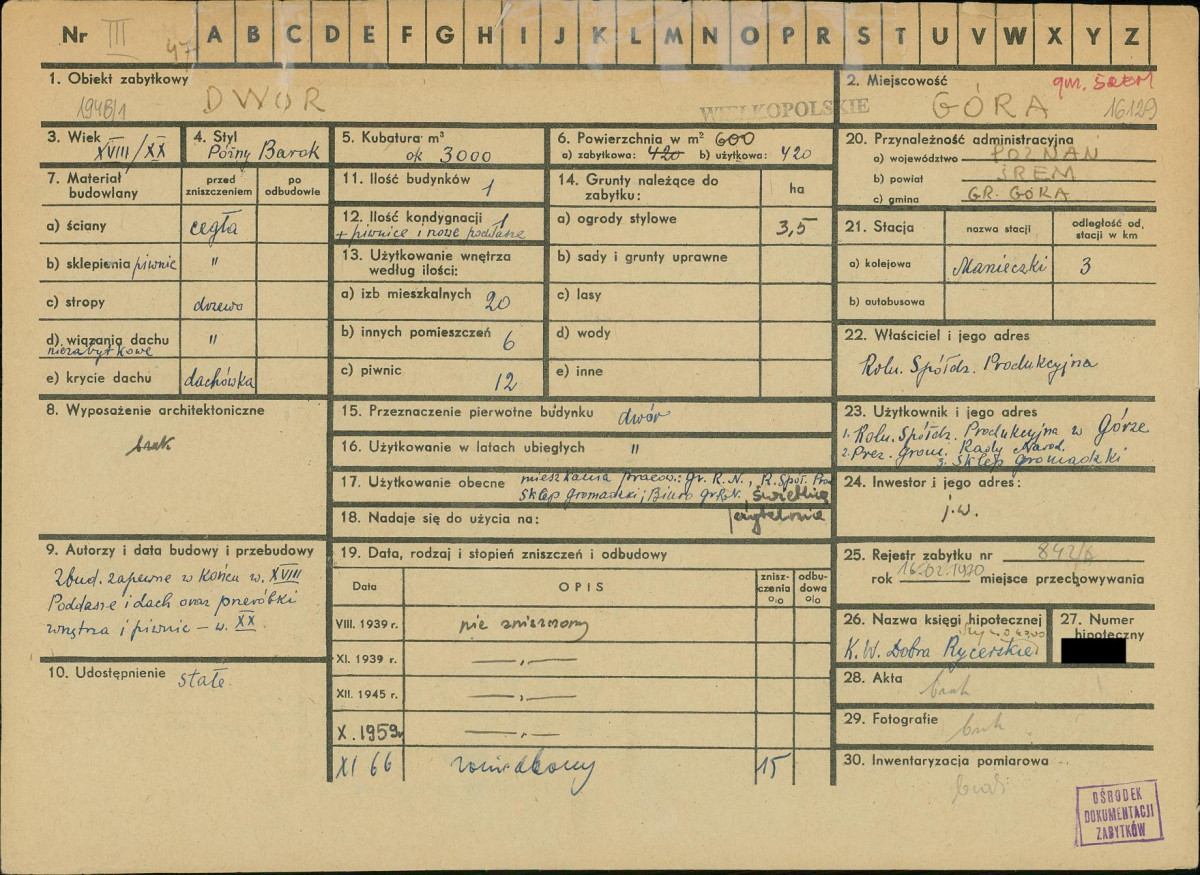 Nr III 47 A B C D E F G H I J K L M N O P R S T U V W X Y Z
1. Obiekt zabytkowy
1948/1 DWÓR
WIELKOPOLSKIE
2. Miejscowość gm. ŚREM
GÓRA 16129
3. Wiek
XVIII/XX
4. Styl
Późny Barok
5. Kubatura m³
ok 3000
6. Powierzchnia w m² 600
a) zabytkowa: 420 b) użytkowa: 420
7. Materiał budowlany
przed zniszczeniem
po odbudowie
a) ściany cegła
b) sklepienia piwnic "
c) stropy drzewo
d) wiązania dachu "
niezabytkowe
e) krycie dachu dachówka
8. Wyposażenie architektoniczne
brak
9. Autorzy i data budowy i przebudowy
Zbud. zapewne w końcu w. XVIII
Poddasze i dach oraz przeróbki
wnętrza i piwnic – w. XX.
10. Udostępnienie stałe.
11. Ilość budynków 1
12. Ilość kondygnacji 1
+ piwnice i nowe poddasze
13. Użytkowanie wnętrza
według ilości:
a) izb mieszkalnych 20
b) innych pomieszczeń 6
c) piwnic 12
14. Grunty należące do
zabytku:
ha
a) ogrody stylowe 3,5
b) sady i grunty uprawne
c) lasy
d) wody
e) inne
15. Przeznaczenie pierwotne budynku dwór
16. Użytkowanie w latach ubiegłych "
17. Użytkowanie obecne mieszkania pracow.: Gr. R. N., R. Spół. Pro
Sklep gromadzki; Biuro Gr.R.N. świetlica
18. Nadaje się do użycia na: czytelnia
19. Data, rodzaj i stopień zniszczeń i odbudowy
Data
OPIS
znisz-
czenia
%
odbu-
dowa
%
VIII. 1939 r. nie zniszczony
XI. 1939 r. —„—
XII. 1945 r. —„—
X. 1959 r. —„—
XI 66 15
20. Przynależność administracyjna
a) województwo POZNAŃ
b) powiat ŚREM
c) gmina GR. GÓRA
21. Stacja
nazwa stacji
odległość od
stacji w km
a) kolejowa Manieczki 3
b) autobusowa
22. Właściciel i jego adres
Roln. Spółdz. Produkcyjna
23. Użytkownik i jego adres
1. Roln. Spółdz. Produkcyjna w Górze
2. Prez. Grom. Rady Narod.
3. Sklep gromadzki
24. Inwestor i jego adres:
j.w.
25. Rejestr zabytku nr 842/A
rok 16.02.1970 miejsce przechowywania
26. Nazwa księgi hipotecznej
K.W. Dobra Rycerskie
27. Numer
hipoteczny
28. Akta
brak
29. Fotografie
brak
30. Inwentaryzacja pomiarowa
brak
OŚRODEK
DOKUMENTACJI
ZABYTKÓW